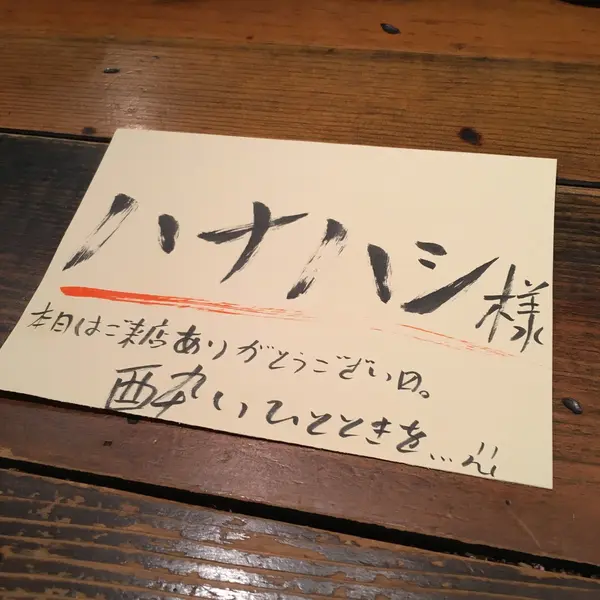 ハナハシ様
本日はご来店ありがとうございます。
酔いひとときを...!!